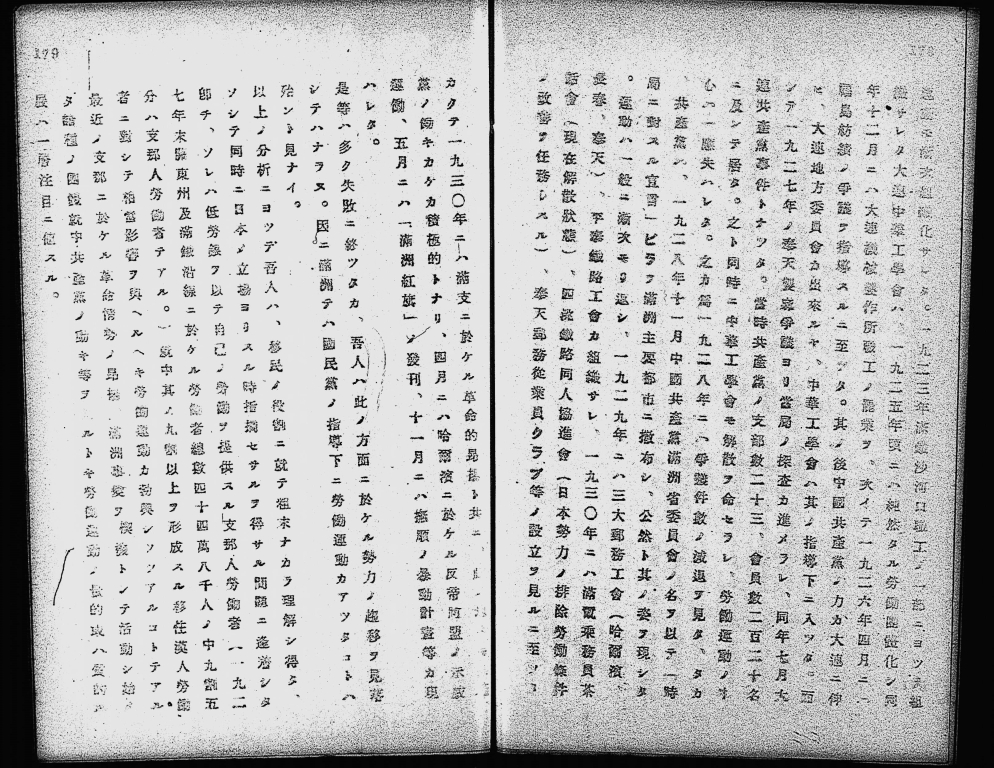 178
年十二月ニハ大連機械製作所職工ノ罷業ヲ、次イテ一九二六年四月ニ
福島紡績ノ爭議ヲ指導スルニ至ツタ。其ノ後中國共產黨ノ力カ大連ニ伸
ヒ、大連地方委員會カ出來ルヤ、中華工學會ハ其ノ指導下ニ入ツタ。而
シテ一九二七年ノ奉天製麻爭議ヨリ當局ノ探査カ進メラレ、同年七月大
連共產黨事件トナツタ。當時共產黨ノ支部數二十三、會員數二百二十名
ニ及ンテ居タ。之ト同時ニ中華工學會モ解散ヲ命セラレ、勞働運動ノ中
心ハ一應失ハレタ。之カ爲一九二八年ニハ爭議件數ノ減退ヲ見タ、タカ
共產黨ハ、一九二八年十一月中國共產黨滿洲省委員會ノ名ヲ以テ「時
局ニ對スル宣言」ビラヲ滿洲主要都市ニ撒布シ、公然ト其ノ姿ヲ現シタ
。運動ハ一般ニ漸次モリ返シ、一九二九年ニハ三大郵務工會（哈爾濱、
長春、奉天）、平奉鐵路工會カ組織サレ、一九三〇年ニハ滿電乘務員茶
話會（現在解散狀態）、四洮鐵路同人協進會（日本勢力ノ排除勞働條件
ノ改善ヲ任務トスル）、奉天郵務從業員クラブ等ノ設立ヲ見ルニ至ツ
179
カクテ一九三〇年ニハ滿支ニ於ケル革命的昂揚ト共ニ
黨ノ働キカケカ積極的トナリ、四月ニハ哈爾濱ニ於ケル反帝同盟ノ示威
運動、五月ニハ「滿洲紅旗」ノ發刊、十一月ニハ撫順ノ暴動計畫等カ現
ハレタ。
是等ハ多ク失敗ニ終ツタカ、吾人ハ此ノ方面ニ於ケル勢力ノ趨移ヲ見落
シテハナラヌ。因ニ滿洲テハ國民黨ノ指導下ニ勞働運動カアツタコトハ
殆ント見ナイ。
以上ノ分析ニヨツテ吾人ハ、移民ノ役割ニ就テ粗末ナカラ理解シ得タ、
ソシテ同時ニ日本ノ立場ヨリスル時指摘セサルヲ得サル問題ニ逢着シタ
卽チ、ソレハ低勞銀ヲ以テ自己ノ勞働ヲ提供スル支那人勞働者（一九二
七年末關東州及滿鐵沿線ニ於ケル勞働者總數四十四萬八千人ノ中九割五
分ハ支那人勞働者テアル。）就中其ノ九割以上ヲ形成スル移住漢人勞働
者ニ對シテ相當影響ヲ與ヘルヘキ勞働運動カ勃興シツツアルコトテアル
最近ノ支那ニ於ケル革命情勢ノ昂揚、滿洲事變ヲ模機トシテ活動シ始メ
タ諸種ノ團體就中共產黨ノ動キ等ヲ　ルトキ勞働運動ノ
展ハ一層注目ニ値スル。